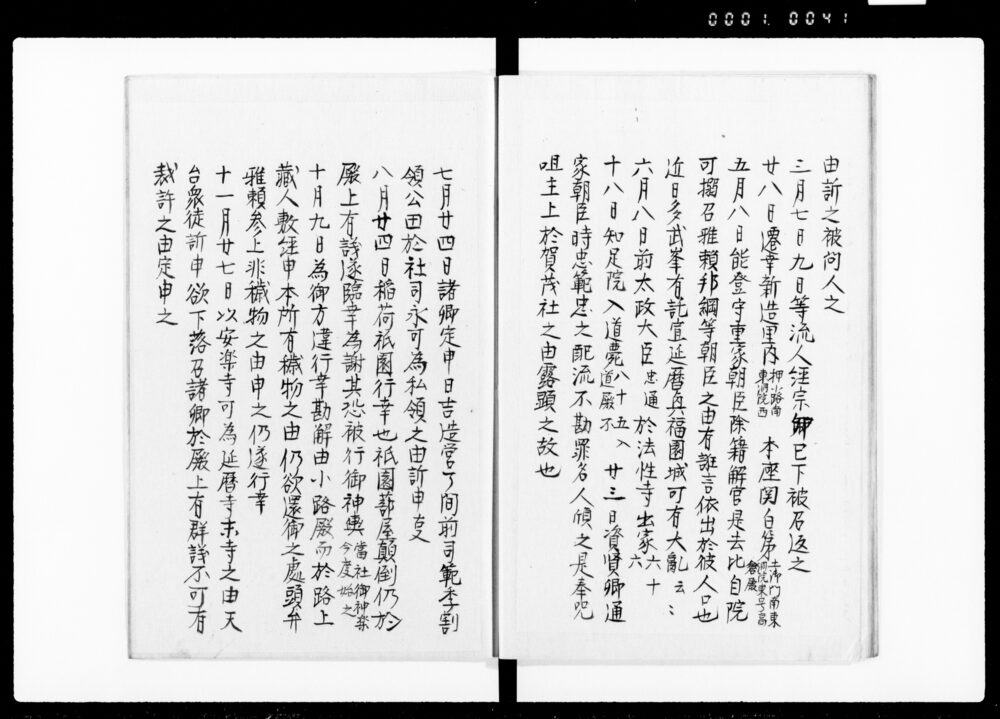 0001. 0041
由訴之被問人之
三月七日九日等流人経宗卿已下被召返之
廿八日遷幸新造里内 押小路南東洞院西 本座関白第 土御門南東洞院東号高倉殿
五月八日能登守重家朝臣除籍解官是去比自院
可搦召雅頼邦綱等朝臣之由有誑言依出於彼人口也
近日多武峯有託宣延暦興福園城可有大亂云〻
六月八日前太政大臣 忠通 於法性寺出家 六十六
十八日知足院入道薨 八十五入道殿不 廿三日資賢卿通
家朝臣時忠範忠之配流不勘罪名人傾之是奉呪
咀主上於賀茂社之由露顕之故也
七月廿四日諸卿定申日吉造営了間前司範季割
領公田於社司永可為私領之由訴申事
八月廿四日稲荷祇園行幸也祇園蔀屋顛倒仍於
殿上有議遂臨幸為謝其恐被行御神樂 當社御神楽今度始之
十月九日為御方違行幸勘解由小路殿而於路上
蔵人敷経申本所有穢物之由仍欲還御之處頭弁
雅頼参上非穢物之由申之仍遂行幸
十一月廿七日以安楽寺可為延暦寺末寺之由天
台衆徒訴申欲下落召諸卿於殿上有群議不可有
裁許之由定申之